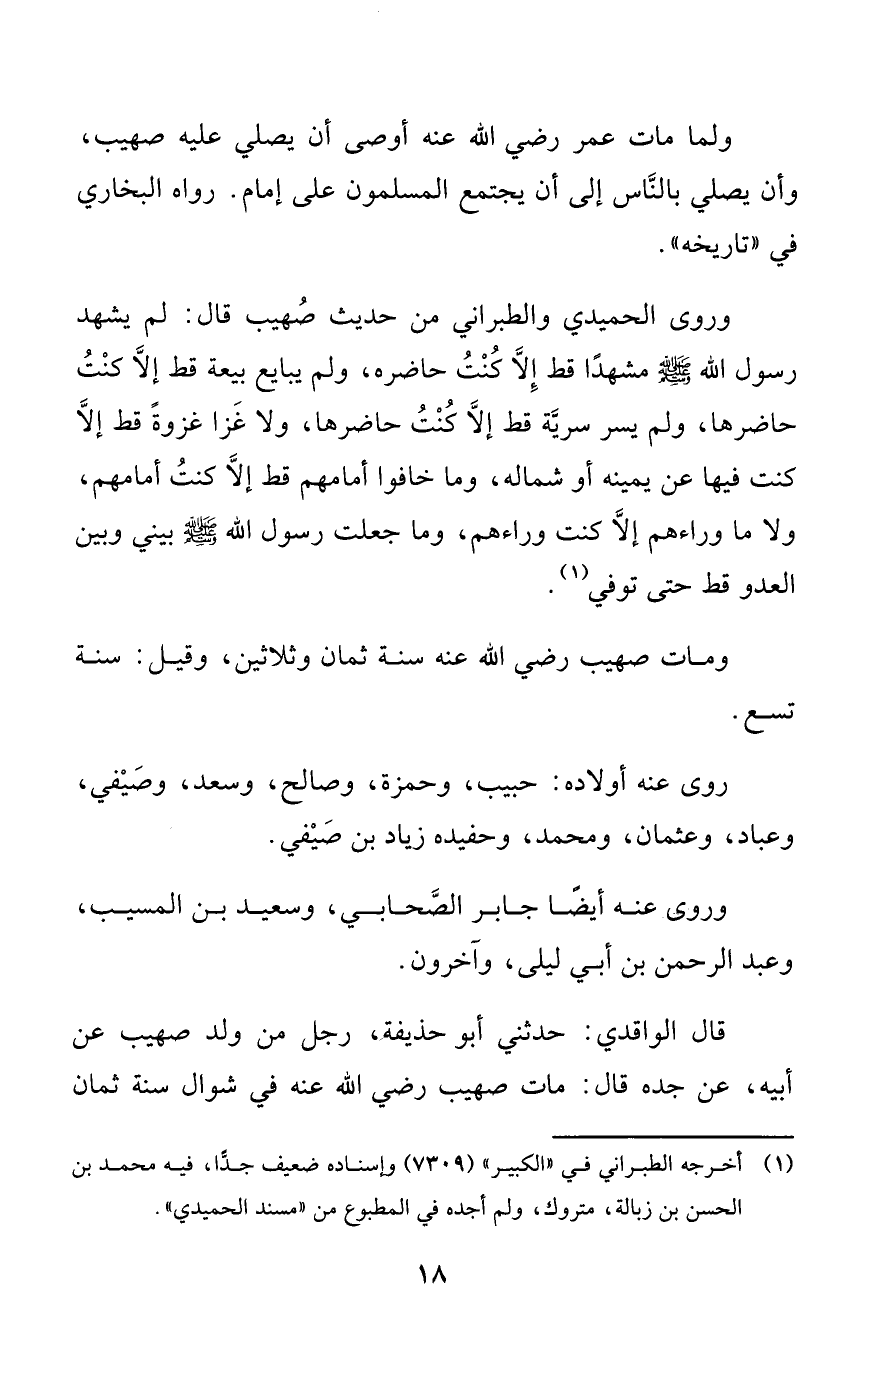 ولما مات عمر رضي الله عنه أوصى أن يصلي عليه صهيب،
وأن يصلي بالنَّاس إلى أن يجتمع المسلمون على إمام. رواه البخاري
في «تاريخه».
وروى الحميدي والطبراني من حديث صُهيب قال: لم يشهد
رسول الله ﷺ مشهدًا قط إِلاَّ كُنْتُ حاضره، ولم يبايع بيعة قط إلاَّ كنْتُ
حاضرها، ولم يسر سريَّة قط إلاَّ كُنْتُ حاضرها، ولا غَزا غزوةً قط إلاَّ
كنت فيها عن يمينه أو شماله، وما خافوا أمامهم قط إلاَّ كنتُ أمامهم،
ولا ما وراءهم إلاَّ كنت وراءهم، وما جعلت رسول الله ﷺ بيني وبين
العدو قط حتى توفي(١).
ومات صهيب رضي الله عنه سنة ثمان وثلاثين، وقيل: سنة
تسع.
روى عنه أولاده: حبيب، وحمزة، وصالح، وسعد، وصَيْفي،
وعباد، وعثمان، ومحمد، وحفيده زياد بن صَيْفي.
وروى عنه أيضًا جابر الصَّحابي، وسعيد بن المسيب،
وعبد الرحمن بن أبي ليلى، وآخرون.
قال الواقدي: حدثني أبو حذيفة، رجل من ولد صهيب عن
أبيه، عن جده قال: مات صهيب رضي الله عنه في شوال سنة ثمان
(١) أخرجه الطبراني في «الكبير» (٧٣٠٩) وإسناده ضعيف جدًّا، فيه محمد بن
الحسن بن زبالة، متروك، ولم أجده في المطبوع من «مسند الحميدي».
١٨